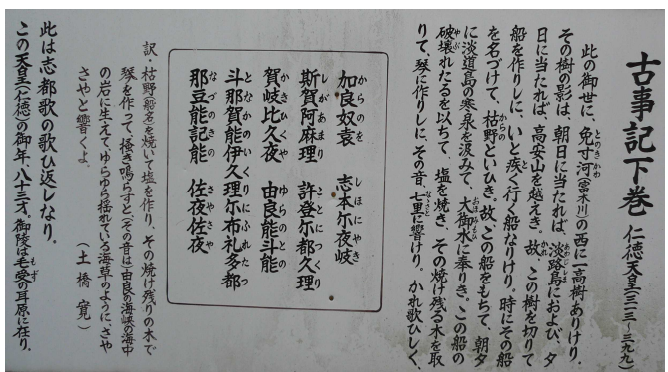 古事記下巻 仁徳天皇(三一三～三九九)
此の御世に、免寸河(富木川)の西に一高樹ありけり。
その樹の影は、朝日に当たれば、淡路島におよび、夕
日に当たれば、高安山を越えき。故、この樹を切りて
船を作りしに、いと疾く行く船なりけり。時にその船
を名づけて、枯野といひき。故、この船をもちて、朝夕
に淡道島の寒泉を汲みて、大御水に奉りき。この船の
破壊れたるを以ちて、塩を焼き、その焼け残る木を取
りて、琴に作りしに、その音、七里に響けり。かれ歌ひしく、
加良奴袁 志本尓夜岐
斯賀阿麻理 許登尓都久理
賀岐比久夜 由良能斗能
斗那賀能伊久理尓布礼多都
那豆能記能 佐夜佐夜
訳・枯野(船名)を焼いて塩を作り、その焼け残りの木で
琴を作って、掻き鳴らすと(その音は)由良の海峡の海中
の岩に生えて、ゆらゆら揺れている海草のように、さや
さやと響くよ。
(土橋 寛)
此は志都歌の歌ひ返しなり。
この天皇(仁徳)の御年、八十三才。御陵は毛受の耳原に在り。